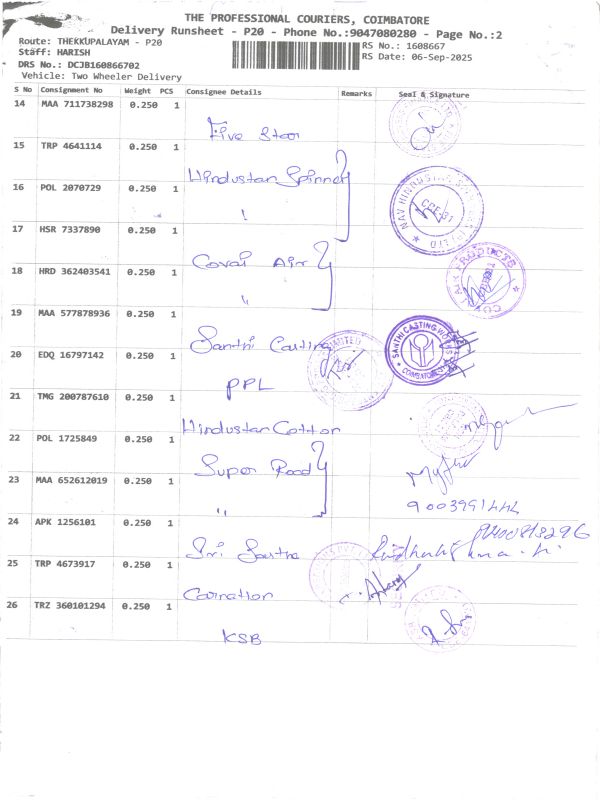 THE PROFESSIONAL COURIERS, COIMBATORE
Delivery Runsheet - P20 - Phone No.:9047080280 - Page No.:2
Route: THEKKUPALAYAM - P20
RS No.: 1608667
Staff: HARISH
RS Date: 06-Sep-2025
DRS No.: DCJB160866702
Vehicle: Two Wheeler Delivery
S No Consignment No Weight PCS Consignee Details Remarks Seal & Signature
14 MAA 711738298 0.250 1
Five Star
15 TRP 4641114 0.250 1
Hindustan Spinners
16 POL 2070729 0.250 1
"
17 HSR 7337890 0.250 1
Covai Air
18 HRD 362403541 0.250 1
"
19 MAA 577878936 0.250 1
Santhi Casting
SANTHI CASTING WORKS
COIMBATORE
20 EDQ 16797142 0.250 1
PPL
21 TMG 200787610 0.250 1
Hindustan Cotton
22 POL 1725849 0.250 1
Super Road
23 MAA 652612019 0.250 1
"
9003991444
24 APK 1256101 0.250 1
9400813296
Sri
25 TRP 4673917 0.250 1
Carnation
26 TRZ 360101294 0.250 1
KSB